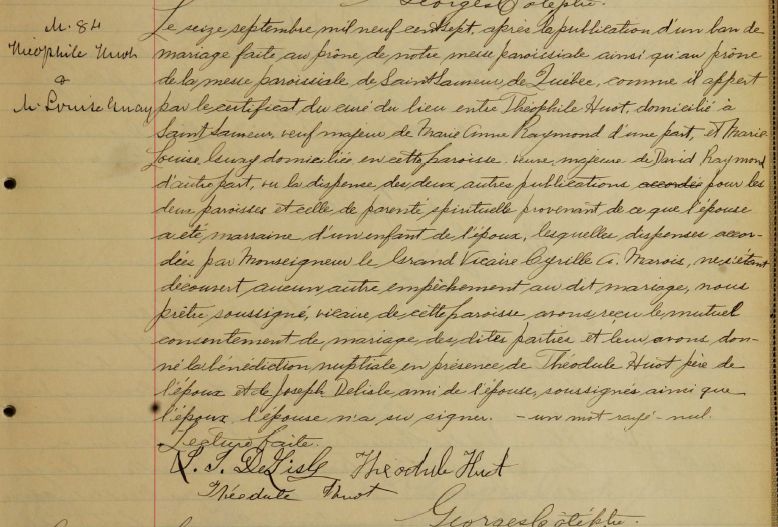 Georges Côté ptre.
M. 84
Théophile Huot
&
M. Louise Emay
Le seize septembre mil neuf cent sept, après la publication d'un ban de
mariage faite au prône de notre messe paroissiale ainsi qu'au prône
de la messe paroissiale de Saint Sauveur de Québec, comme il appert
par le certificat du curé du lieu entre Théophile Huot, domicilié à
Saint Sauveur, veuf majeur de Marie Anne Raymond d'une part, et Marie
Louise domiciliée en cette paroisse veuve, majeure de David Raymond
d'autre part, vu la dispense des deux autres publications accordée pour les
deux paroisses et celle de parenté spirituelle provenant de ce que l'épouse
a été marraine d'un enfant de l'époux, lesquelles dispenses accor-
dées par Monseigneur le Grand Vicaire Cyrille A. Marois, ne s'étant
découvert aucun autre empêchement au dit mariage, nous
prêtre soussigné, vicaire de cette paroisse avons reçu le mutuel
consentement de mariage des dites parties et leur avons don-
né la bénédiction nuptiale en présence de Théodule Huot père de
l'époux et de Joseph Delisle ami de l'épouse, soussignés ainsi que
l'époux l'épouse n'a su signer. - un mot rayé nul.
Lecture faite.
J. DeLisle Théodule Huot
Huot
Georges Côté ptre.